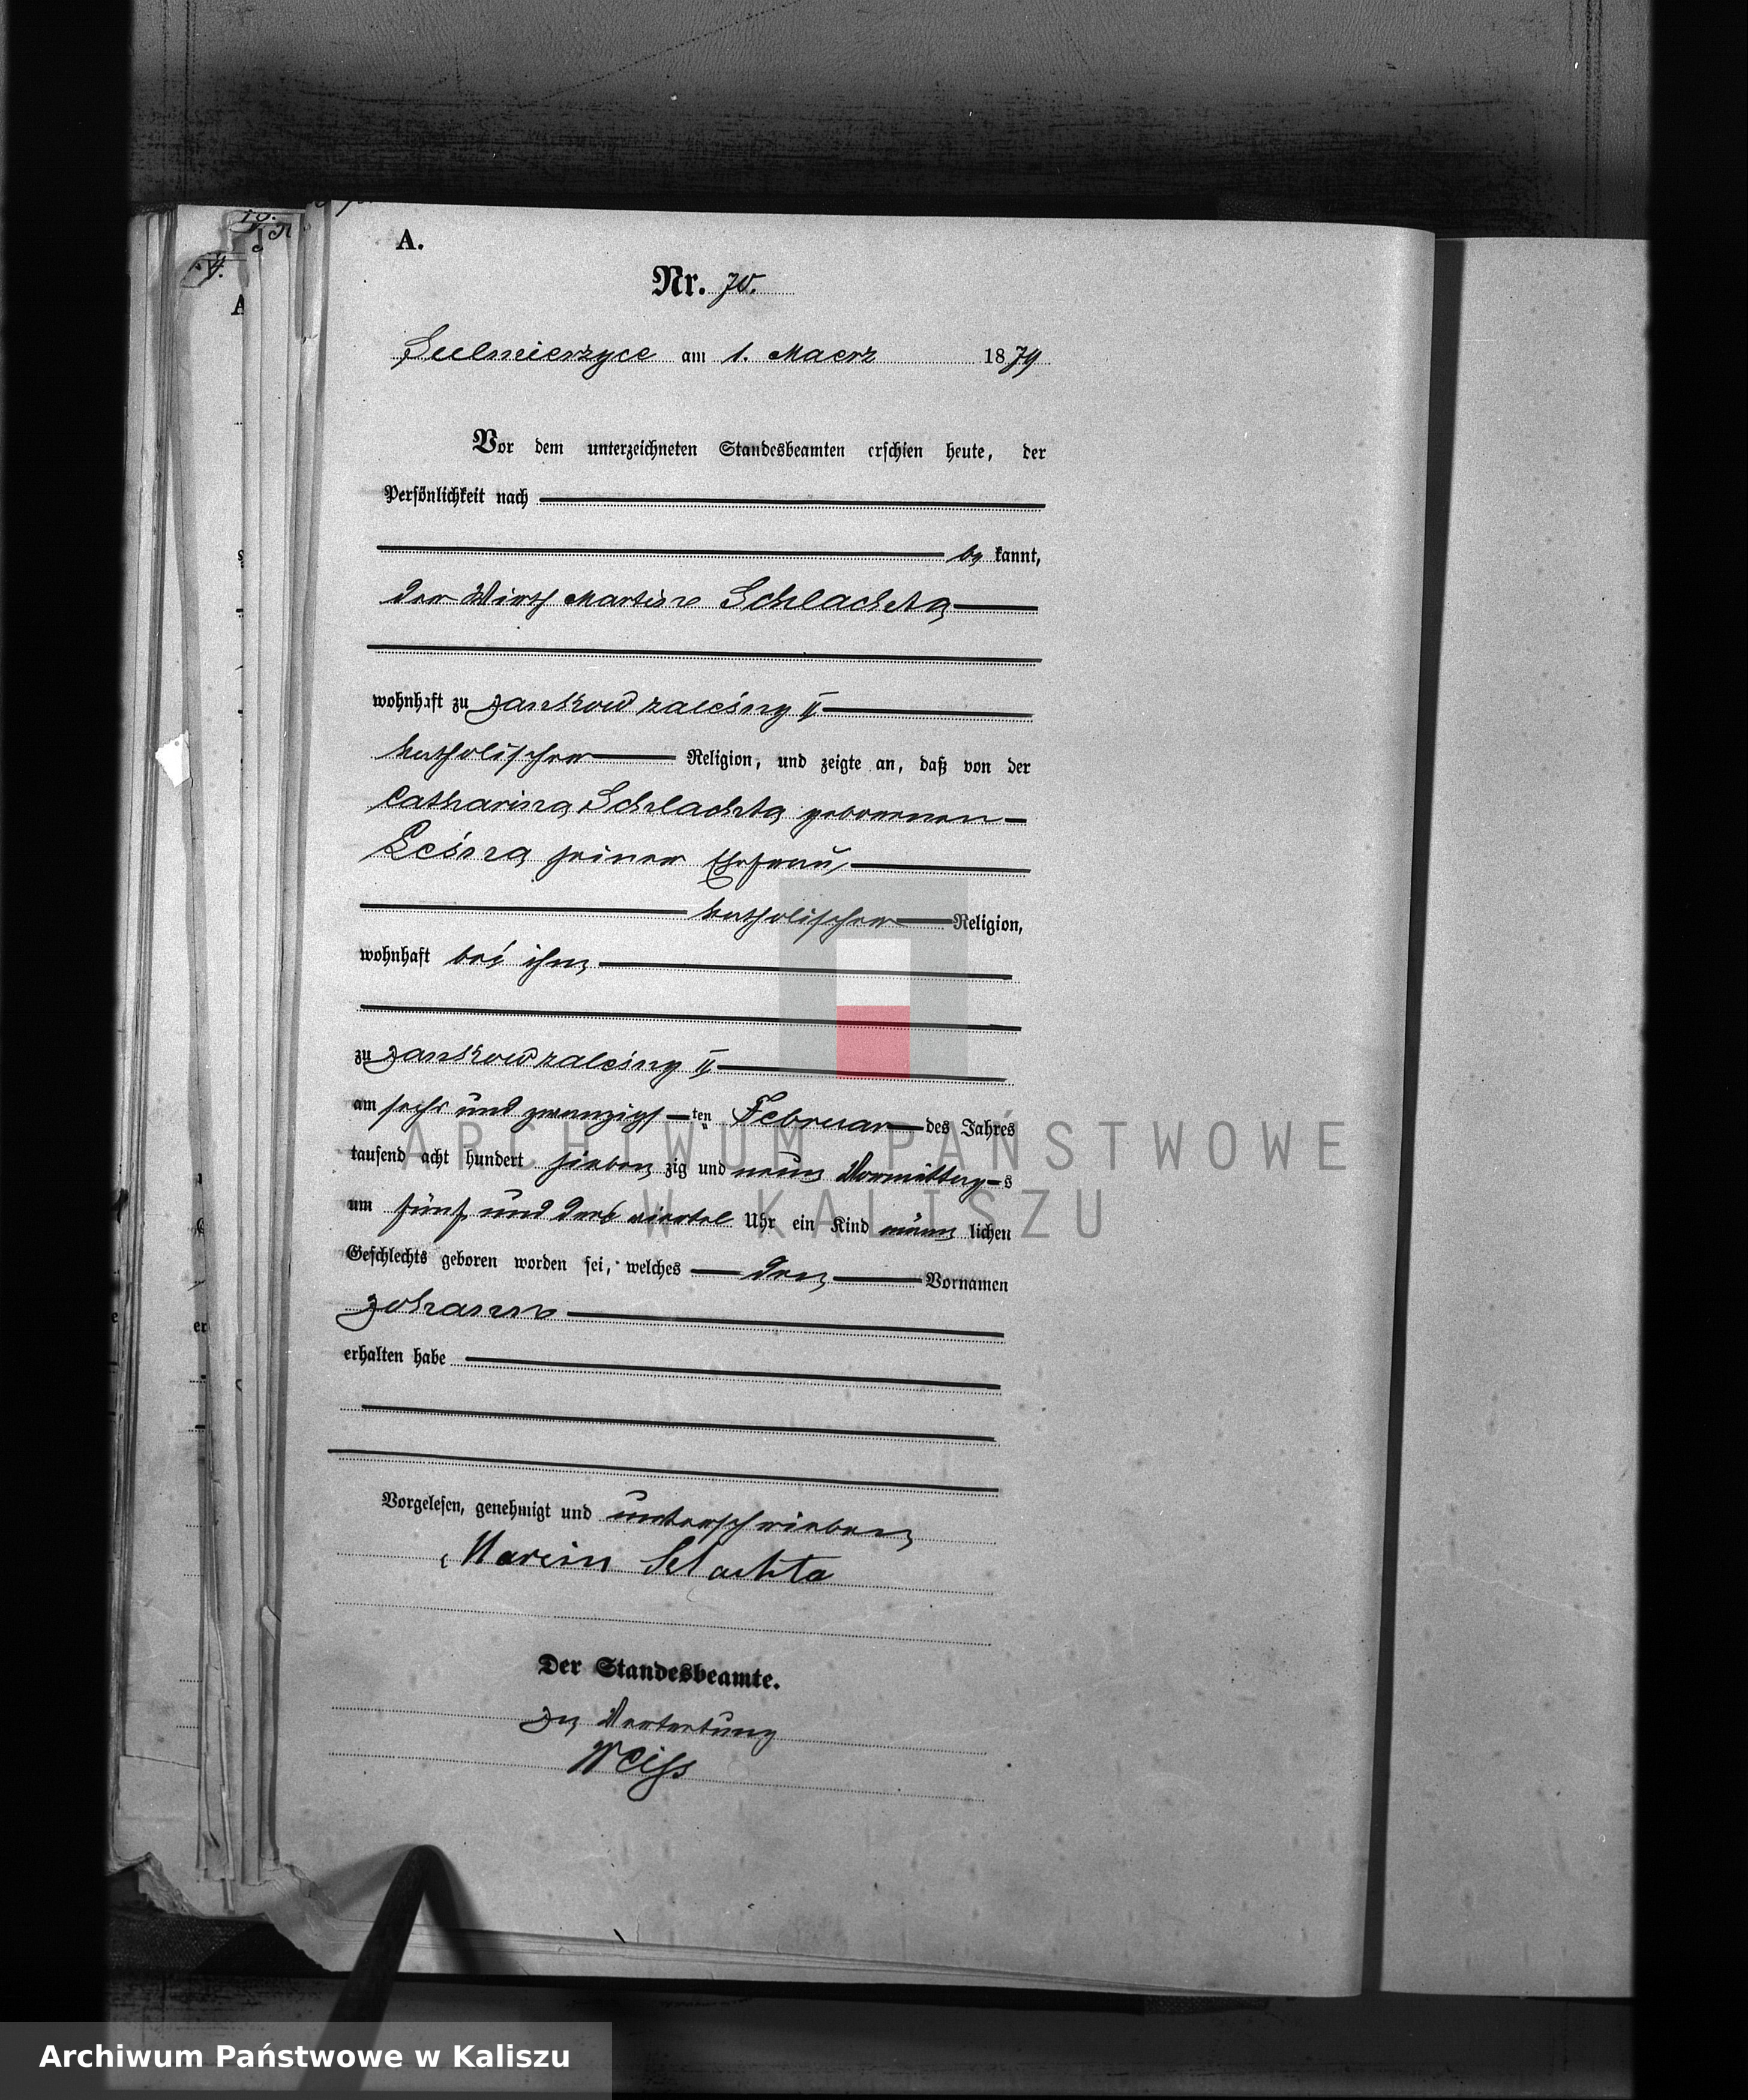 A.
Nr. 70.
Sulmierzyce am 1. Maerz 1879
Vor dem unterzeichneten Standesbeamten erschien heute, der
Persönlichkeit nach
be kannt,
der Wirth Martin Schlachta
wohnhaft zu Jankow zalesny II
katholischer Religion, und zeigte an, daß von der
Catharina Schlachta geborenen
Leśna seiner Ehefrau,
katholischer Religion,
wohnhaft bei ihm
zu Jankow zalesny II
am sechs und zwanzigs ten Februar des Jahres
tausend acht hundert sieben zig und neun Vormittag s
um fünf und drei viertel Uhr ein Kind männ lichen
Geschlechts geboren worden sei, welches den Vornamen
Johann
erhalten habe
Vorgelesen, genehmigt und unterschrieben
Marcin Slachta
Der Standesbeamte.
In Vertretung
Weiss
ARCHIWUM PAŃSTWOWE
W KALISZU
Archiwum Państwowe w Kaliszu